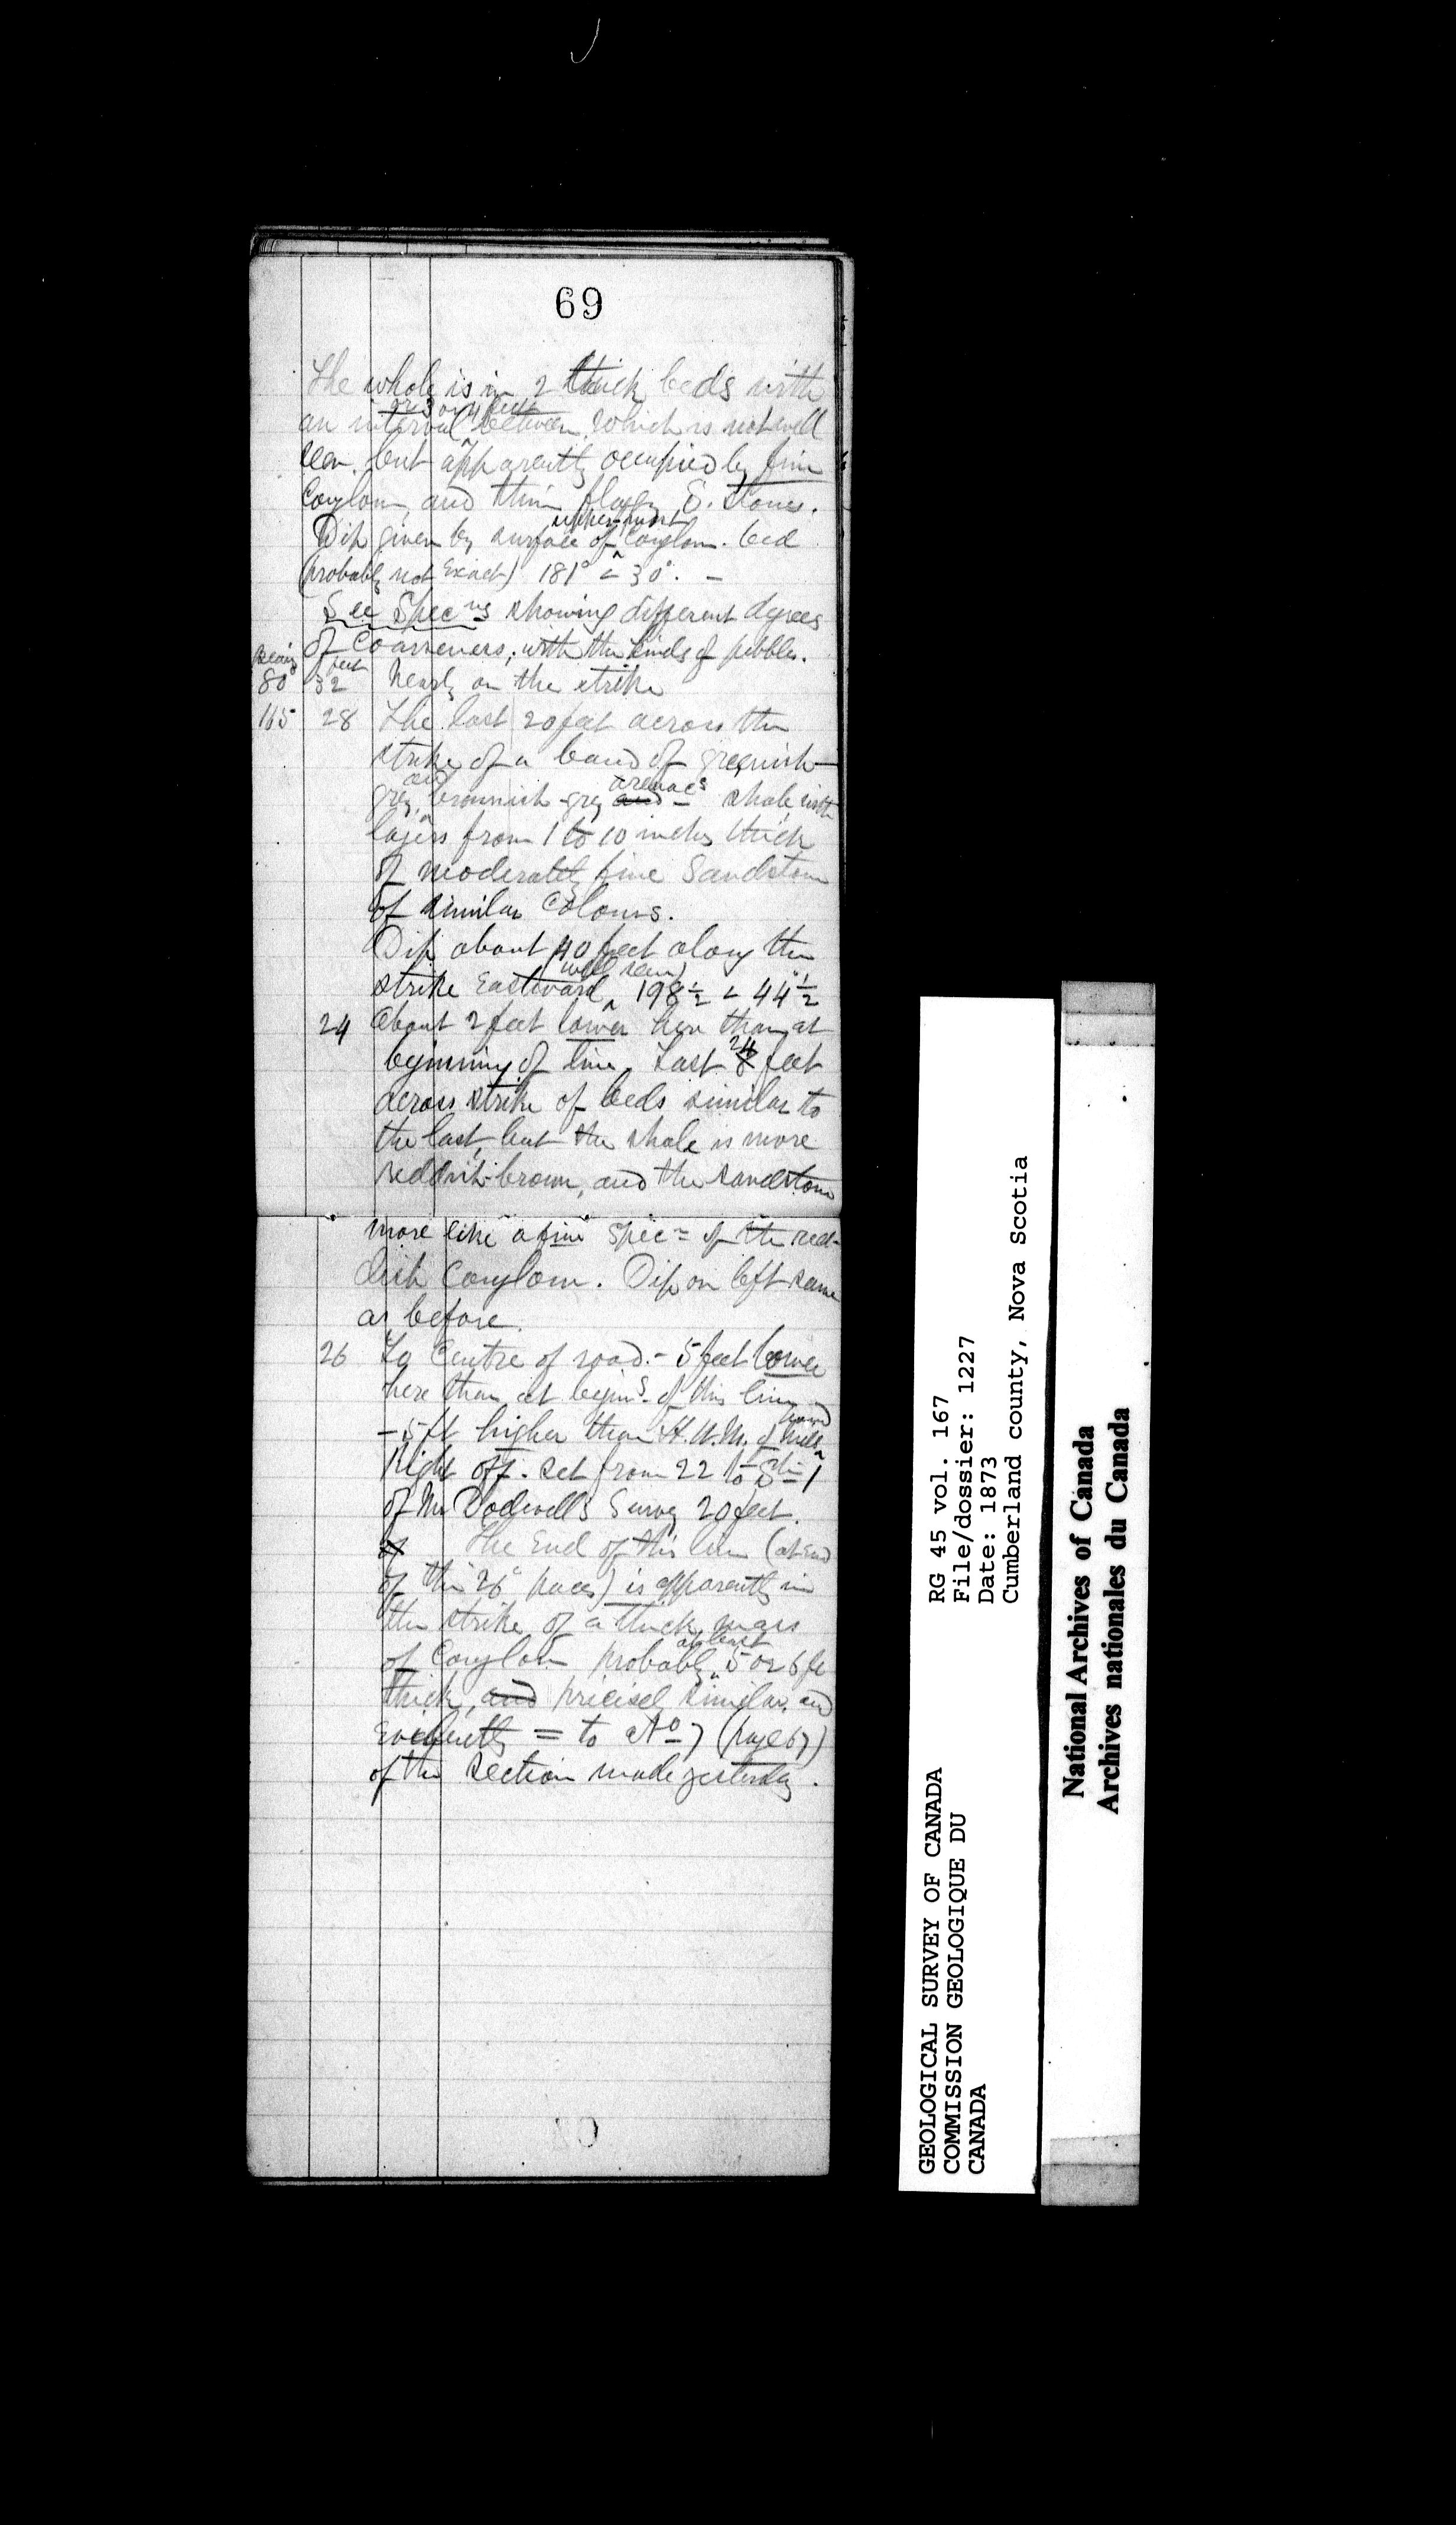 69
The whole is in 2 thick beds with
or 3 or 4 feet
an interval between, which is not well
seen but apparently occupied by fine
Conglom. and thin flaggy S. stones.
uppermost
Dip given by surface of Conglom. bed
(probably not Exact) 181° < 30°. –
See Specns showing different degrees
of Coarseness, with the kinds of pebbles.
feet
80 32 Nearly on the strike
165 28 The last 20 feet across the
strike of a band of greenish-
and arenacs
grey, brownish-grey and shale with
layers from 1 to 10 inches thick
of moderately fine Sandstone
of similar Colours.
Dip about 40 feet along the
(well seen)
strike Eastward 198½ < 44½
24 About 2 feet lower here than at
24
beginning of line. Last 8 feet
across strike of beds similar to
the last, but the shale is more
reddish-brown, and the sandstone
more like a fine Spec= of the red-
dish Conglom. Dip on left same
as before.
26 To Centre of road. - 5 feet lower
here than at begins. of this line
- 5 ft higher than H.W.M. of
Right off-set from 22 to Stn 1
of Mr Dodwell's Survey 20 feet.
The End of this line (at End
of the 26 paces) is apparently in
the strike of a thick mass
at least
of Conglom probably 5 or 6 ft
thick, and precisely similar, and
Evidently = to No 7 (page 67)
of the section made yesterday.
GEOLOGICAL SURVEY OF CANADA
COMMISSION GEOLOGIQUE DU
CANADA
RG 45 vol. 167
File/dossier: 1227
Date: 1873
Cumberland county, Nova Scotia
National Archives of Canada
Archives nationales du Canada